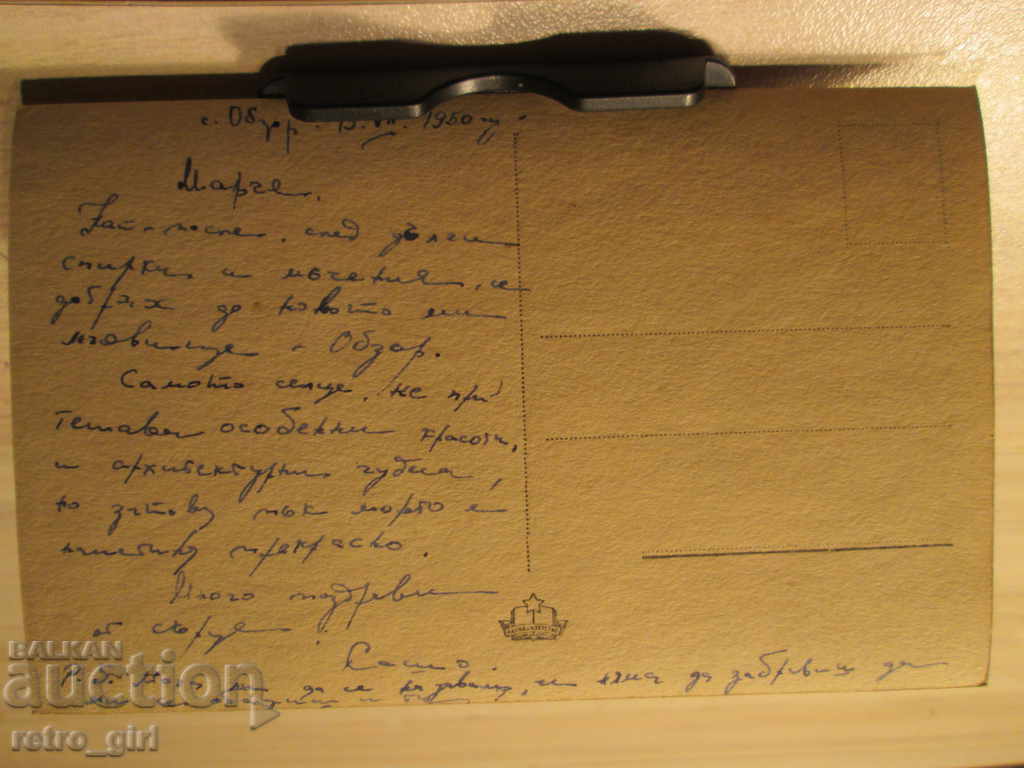 с. Обзор. 1950 г.
Марче,
Най-после, след дълги
спирки и мъчения, се
добрах до новото ми
мговище - Обзор.
Самото селце, не при
тежава особенни красоти,
и архитектурни чудеса,
но затова пък морето е
наистина прекрасно.
Много поздрави
от сърце.
да забравиш да
BALKAN
auction
retro_girl